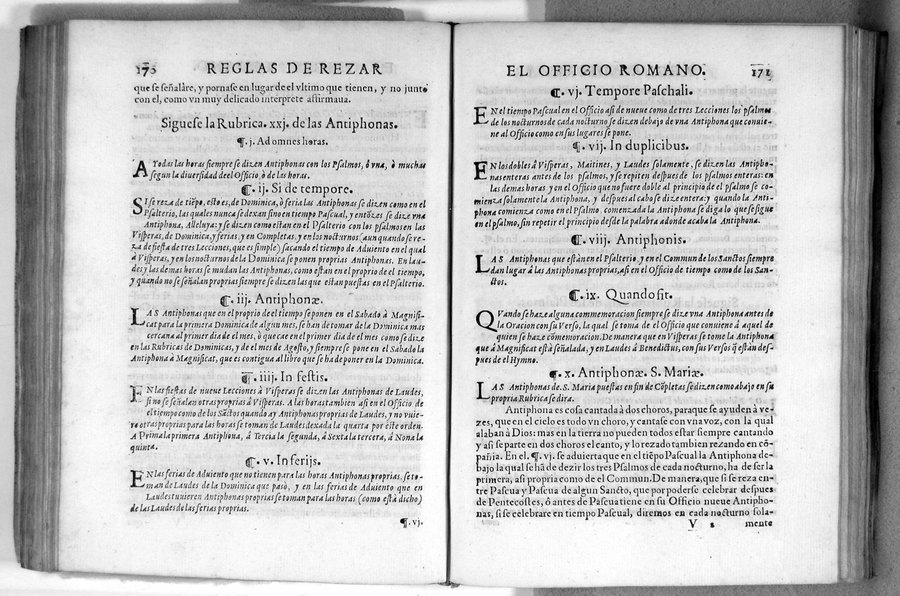 170 REGLAS DE REZAR
que se señalàre, y pornase en lugar de el vltimo que tienen, y no junto
con el, como vn muy delicado interprete affirmaua.
Siguese la Rubrica. xxj. de las Antiphonas.
¶. j. Ad omnes horas.
A Todas las horas siempre se dizen Antiphonas con los Psalmos, ò vna, ò muchas
segun la diversidad de el Officio, ò de las horas.
¶. ij. Si de tempore.
SI se reza de tiẽpo, esto es, de Dominica, ò feria las Antiphonas se dizen como en el
Psalterio, las quales nunca se dexan sino en tiempo Pascual, y entõzes se dize vna
Antiphona, Alleluya: y se dizen como estàn en el Psalterio con los psalmos en las
Visperas, de Dominica, y feria: y en Completas, y en los nocturnos (aun quando se re-
za de fiesta de tres Lecciones, que es simple) sacando el tiempo de Aduiento en el qual
à Visperas, y en los nocturnos de la Dominica se ponen proprias Antiphonas. En lau-
des y las demas horas se mudan las Antiphonas, como estan en el proprio de el tiempo,
y quando no se señalan proprias siempre se dizen las que estan puestas en el Psalterio.
¶. iij. Antiphonæ.
LAS Antiphonas que en el proprio de el tiempo se ponen en el Sabado à Magnifi-
cat para la primera Dominica de algun mes, se han de tomar de la Dominica mas
cercana al primer dia de el mes, ò que cae en el primer dia de el mes como se dize
en las Rubricas de Dominicas, y de el mes de Agosto, y siempre se pone en el Sabado la
Antiphona à Magnificat, que es contigua al libro que se ha de poner en la Dominica.
¶. iiij. In festis.
EN las fiestas de nueve Lecciones à Visperas se dizen las Antiphonas de Laudes,
si no se señalan otras proprias à Visperas. A las horas tambien assi en el Officio de
el tiempo como de los Sãctos quando ay Antiphonas proprias de Laudes, y no vuie-
re otras proprias para las horas se toman de Laudes dexada la quarta por este orden.
A Prima la primera Antiphona, à Tercia la segunda, à Sexta la tercera, à Nona la
quinta.
¶. v. In ferijs.
EN las ferias de Aduiento que no tienen para las horas Antiphonas proprias, se to-
man de Laudes de la Dominica que passò, y en las ferias de Aduiento que en
Laudes tuuieren Antiphonas proprias se toman para las horas (como està dicho)
de las Laudes de las ferias proprias.
¶. vj.
EL OFFICIO ROMANO. 171
¶. vj. Tempore Paschali.
EN el tiempo Pascual en el Officio assi de nueve como de tres Lecciones los psalmos
de los nocturnos de cada nocturno se dizen debajo de vna Antiphona que convie-
ne al Officio como en sus lugares se pone.
¶. vij. In duplicibus.
EN los dobles à Visperas, Maitines, y Laudes solamente, se dizen las Antipho-
nas enteras antes de los psalmos, y se repiten despues de los psalmos enteras: en
las demas horas y en el Officio que no fuere doble al principio de el psalmo se co-
miença solamente la Antiphona, y despues al cabo se dize entera: y quando la Anti-
phona comiença como en el Psalmo, comenzada la Antiphona se diga lo que se sigue
en el psalmo, sin repetir el principio desde la palabra adonde acaba la Antiphona.
¶. viij. Antiphonis.
LAS Antiphonas que estàn en el Psalterio, y en el Commun de los Sanctos siempre
dan lugar à las Antiphonas proprias, assi en el Officio de tiempo como de los San-
ctos.
¶. ix. Quando fit.
QVando se haze alguna commemoracion siempre se dize vna Antiphona antes de
la Oracion con su Verso, la qual se toma de el Officio que conviene à aquel de
quien se haze cõmemoracion. De manera que en Visperas se tome la Antiphona
que à Magnificat està señalada, y en Laudes à Benedictus, con sus Versos q̃ estàn des-
pues de el Hymno.
¶. x. Antiphonæ. S. Mariæ.
LAS Antiphonas de. S. Maria puestas en fin de Cõpletas se dizen como abajo en su
propria Rubrica se dira.
Antiphona es cosa cantada à dos choros, para que se ayuden à ve-
zes, que en el cielo es todo vn choro, y cantase con vna voz, con la qual
alaban à Dios: mas en la tierra no pueden todos estar siempre cantando
y assi se parte en dos choros el canto, y lo rezado tambien rezando en cõ-
pañia. En el. ¶. vj. se aduierta que en el tiẽpo Pascual la Antiphona de-
bajo la qual se hã de dezir los tres Psalmos de cada nocturno, ha de ser la
primera, assi propria como de el Commun. De manera, que si se reza en-
tre Pascua y Pascua de algun Sancto, que por poderse celebrar despues
de Pentecostes, ò antes de Pascua tiene en su Officio nueve Antipho-
nas, si se celebrare en tiempo Pascual, diremos en cada nocturno sola-
V 2 mente